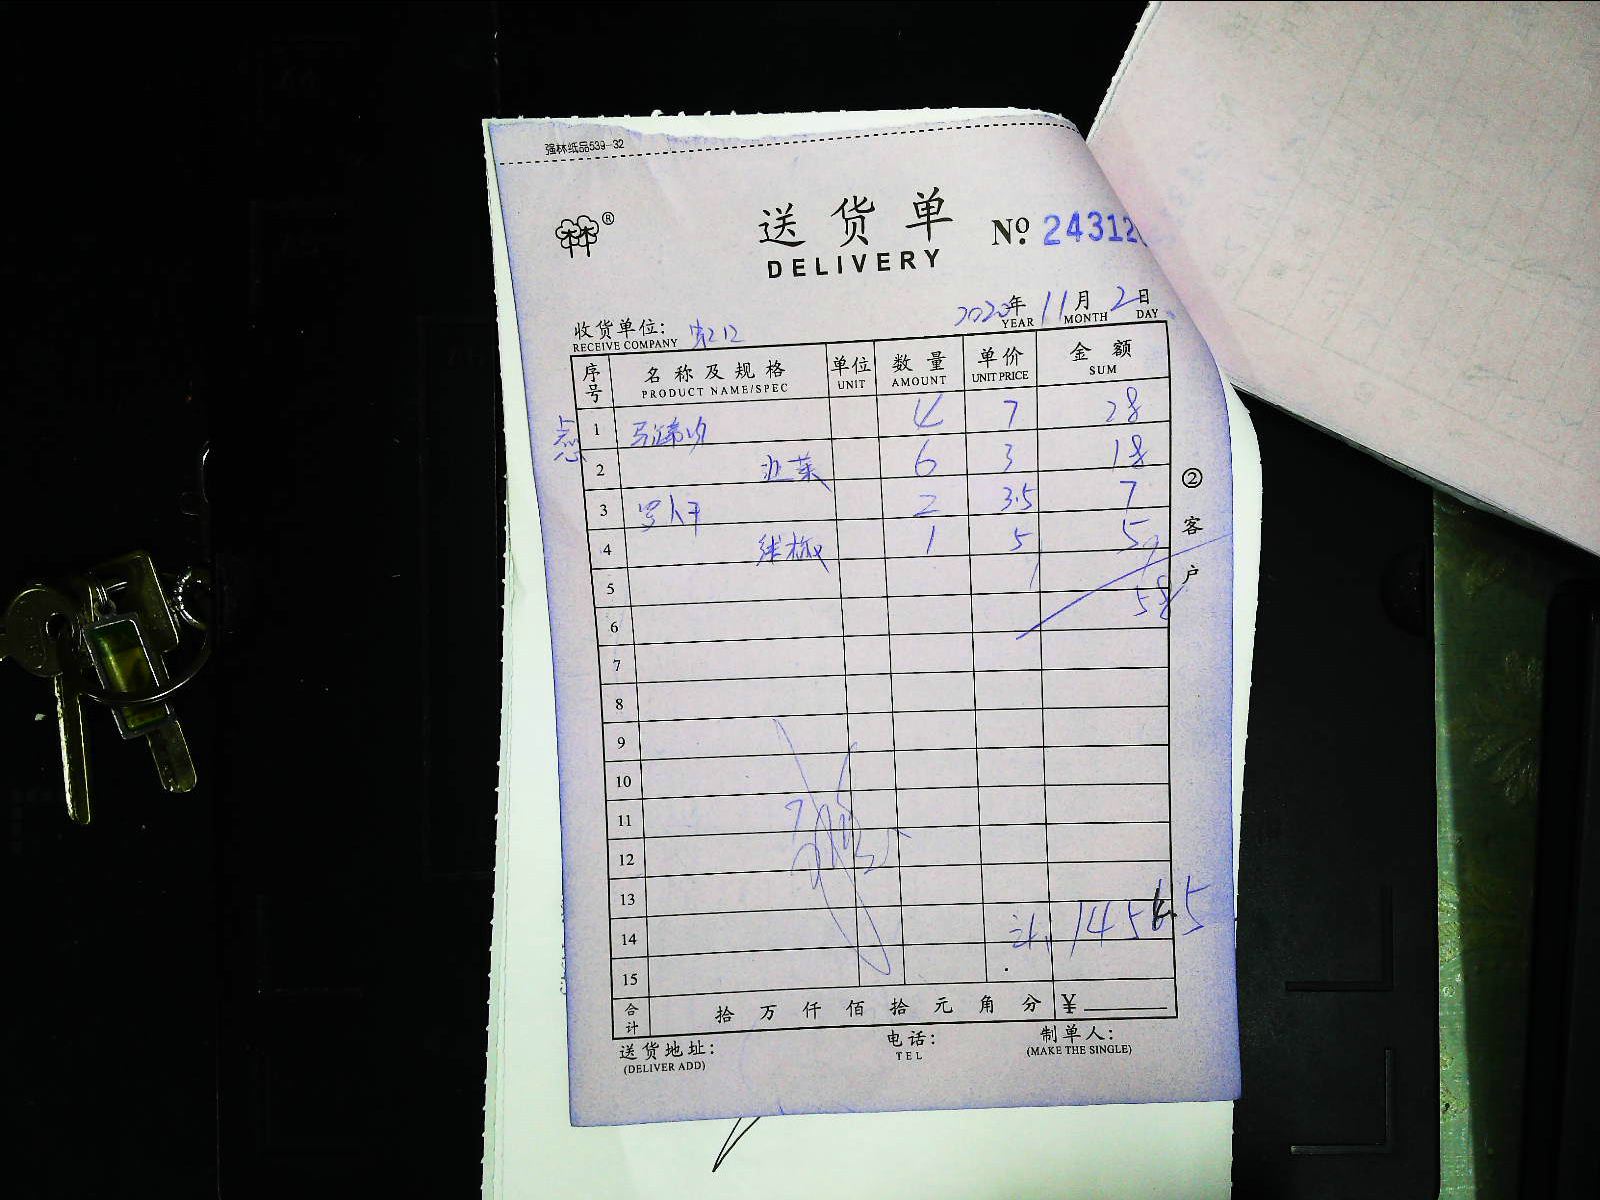 强林纸品539-32
®
送货单 No. 24312
DELIVERY
2020年 11月 2日
YEAR MONTH DAY
收货单位:
RECEIVE COMPANY
序号 名称及规格 单位 数量 单价 金额
PRODUCT NAME/SPEC UNIT AMOUNT UNIT PRICE SUM
1 4 7 28
2 韭菜 6 3 18
3 2 3.5 7
4 1 5 5
5
6 58
7
8
9
10
11
12
13
14
15
合计 拾 万 仟 佰 拾 元 角 分 ¥
送货地址: 电话: 制单人:
(DELIVER ADD) TEL (MAKE THE SINGLE)
② 客户